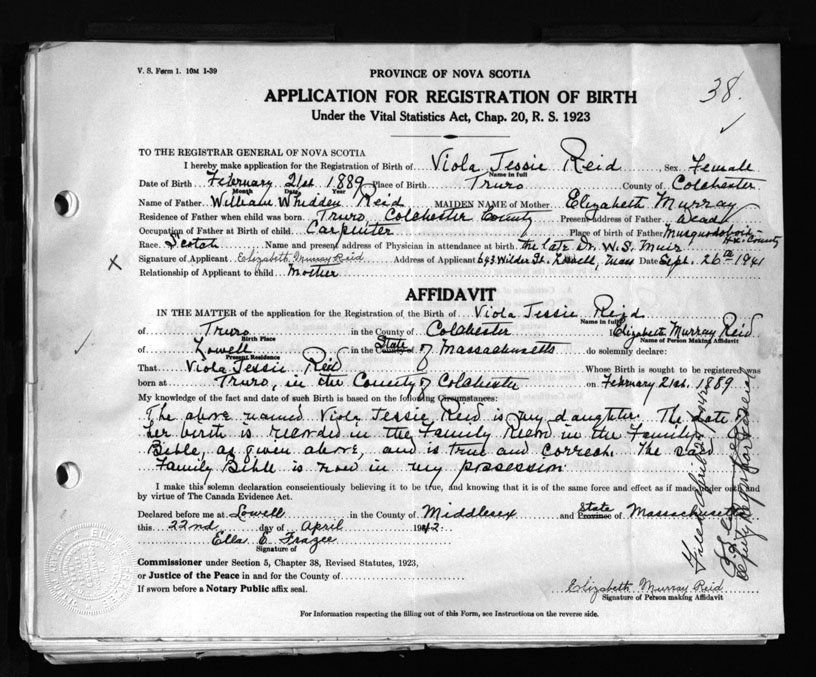 V. S. Form 1. 10M 1-39
PROVINCE OF NOVA SCOTIA
38.
APPLICATION FOR REGISTRATION OF BIRTH
Under the Vital Statistics Act, Chap. 20, R. S. 1923
TO THE REGISTRAR GENERAL OF NOVA SCOTIA
I hereby make application for the Registration of Birth of Viola Jessie Reid Sex Female
Name in full
Date of Birth February 21st. 1889 Place of Birth Truro County of Colchester
Month Day Year
Name of Father William Whidden Reid MAIDEN NAME of Mother Elizabeth Murray
Residence of Father when child was born Truro, Colchester County Present Address of Father dead
Occupation of Father at Birth of child Carpenter Place of birth of Father Musquodoboit Hx. County
Race. Scotch Name and present address of Physician in attendance at birth. The late Dr. W. S. Muir
Signature of Applicant Elizabeth Murray Reid Address of Applicant 643 Wilder St. Lowell, Mass Date Sept. 26th 1941
X
Relationship of Applicant to child Mother
AFFIDAVIT
IN THE MATTER of the application for the Registration of the Birth of Viola Jessie Reid
Name in full
of Truro in the County of Colchester I, Elizabeth Murray Reid
Birth Place Name of Person Making Affidavit
of Lowell in the County State of Massachusetts do solemnly declare:
Present Residence
That Viola Jessie Reid Whose Birth is sought to be registered was
born at Truro, in the County of Colchester on February 21st. 1889
My knowledge of the fact and date of such Birth is based on the following Circumstances:
The above named Viola Jessie Reid is my daughter. The date of
her birth is recorded in the Family Record in the Family
Bible, as given above, and is true and correct. The said
Family Bible is now in my possession
I make this solemn declaration conscientiously believing it to be true, and knowing that it is of the same force and effect as if made under oath and
by virtue of The Canada Evidence Act.
Declared before me at Lowell in the County of Middlesex and Province State of Massachusetts
this 22nd day of April 1942.
Ella E. Frazee
Signature of
Commissioner under Section 5, Chapter 38, Revised Statutes, 1923,
or Justice of the Peace in and for the County of
If sworn before a Notary Public affix seal.
Elizabeth Murray Reid
Signature of Person making Affidavit
For Information respecting the filling out of this Form, see Instructions on the reverse side.
Filed April 1942
Deputy Registrar General